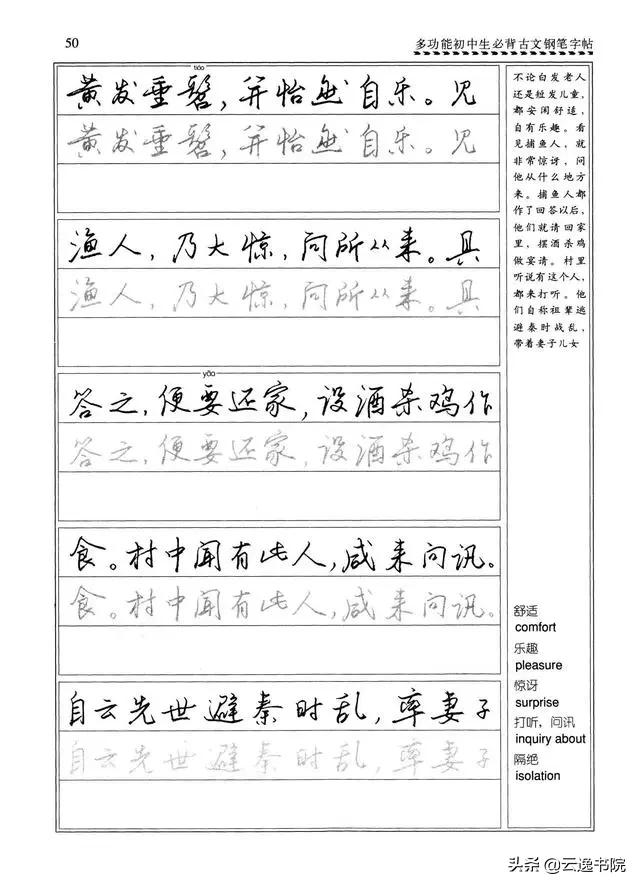 50
多功能初中生必背古文钢笔字帖
tiáo
黄发垂髫，并怡然自乐。见
黄发垂髫，并怡然自乐。见
渔人，乃大惊，问所从来。具
渔人，乃大惊，问所从来。具
yāo
答之，便要还家，设酒杀鸡作
答之，便要还家，设酒杀鸡作
食。村中闻有此人，咸来问讯。
食。村中闻有此人，咸来问讯。
自云先世避秦时乱，率妻子
自云先世避秦时乱，率妻子
不论白发老人
还是短发儿童，
都安闲舒适，
自有乐趣。看
见捕鱼人，就
非常惊讶，问
他从什么地方
来。捕鱼人都
作了回答以后，
他们就请回家
里，摆酒杀鸡
做宴请。村里
听说有这个人，
都来打听。他
们自称祖辈逃
避秦时战乱，
带着妻子儿女
舒适
comfort
乐趣
pleasure
惊讶
surprise
打听，问讯
inquiry about
隔绝
isolation
头条 @云逸书院